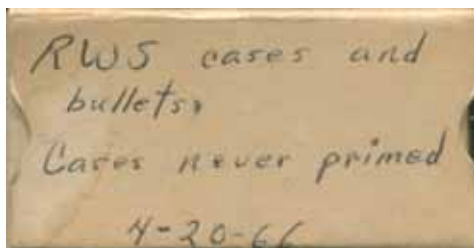 RWS cases and
bullets,
Cases never primed
4-20-66